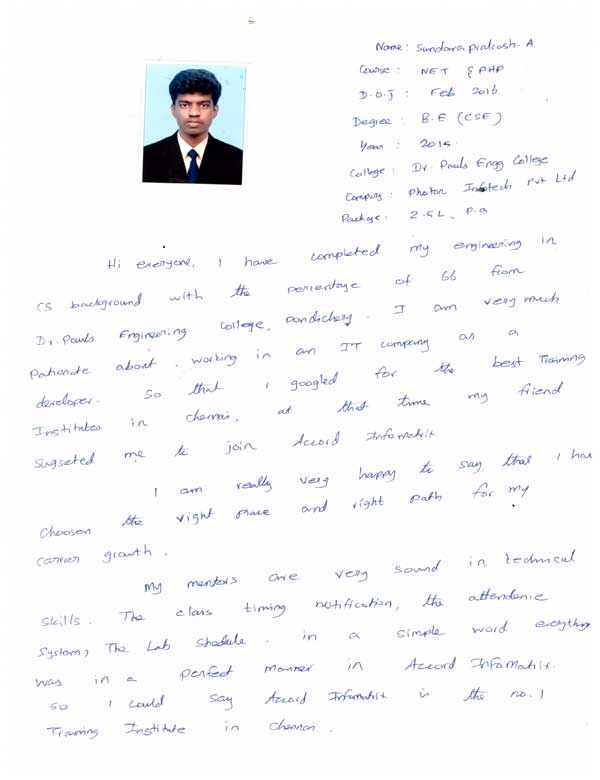 Name: Sundara prakash. A
Course: NET & PHP
D.O.J: Feb 2016.
Degree: B.E (CSE)
Year: 2015.
College: Dr. Pauls Engg College
Company: Photon Infotech Pvt Ltd
Package: 2.5L p.a
Hi everyone, I have completed my engineering in
CS background with the percentage of 66 from
Dr. Pauls Engineering College, pondichery. I am very much
pationate about. working in an IT company as a
developer. So that I googled for the best Training
Institutes in chennai, at that time my friend
Sugseted me to join Accord Infomatrix
I am really very happy to say that I have
choosen the right place and right path for my
carrer growth.
My mentors are very sound in technical
skills. The class timing notification, the attendence
system, The Lab shedule. in a simple word everything
was in a perfect manner in Accord Infomatrix.
so I could say Accord Infomatrix is the no.1
Training Institute in chennai.